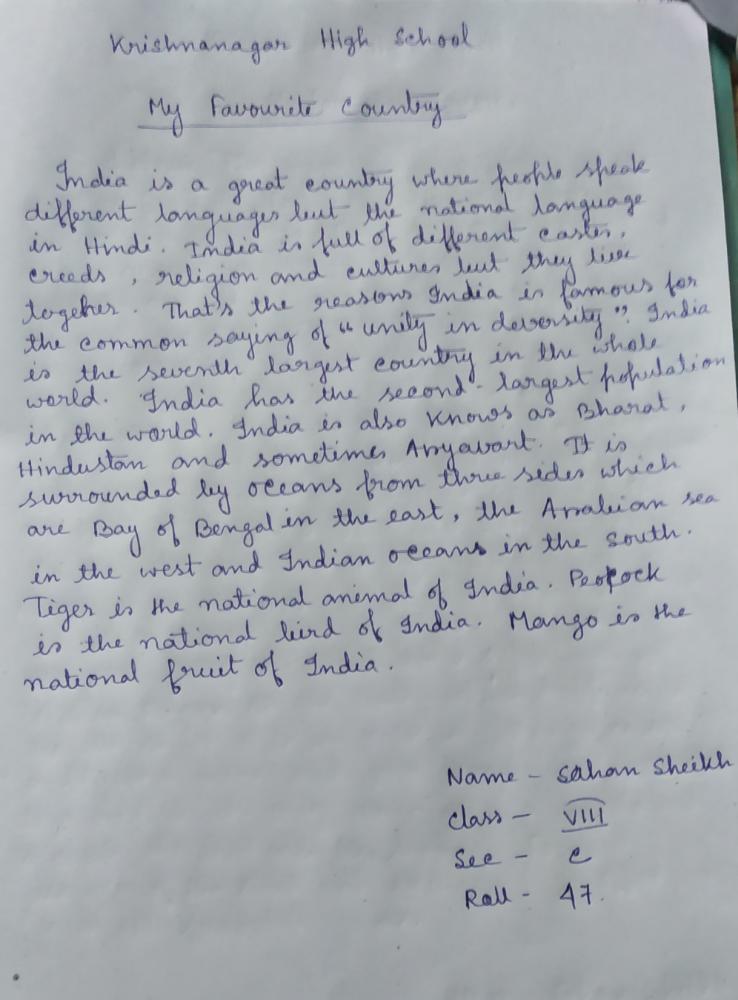 Krishnanagar High School
My Favourite Country
India is a great country where people speak
different languages but the national language
is Hindi. India is full of different castes,
creeds, religion and cultures but they live
together. That's the reasons India is famous for
the common saying of "unity in deversity". India
is the seventh largest country in the whole
world. India has the second-largest population
in the world. India is also Knows as Bharat,
Hindustan and sometimes Aryavart. It is
surrounded by oceans from three sides which
are Bay of Bengal in the east, the Arabian sea
in the west and Indian oceans in the south.
Tiger is the national animal of India. Peocock
is the national bird of India. Mango is the
national fruit of India.
Name - Sahan Sheikh
Class - VIII
Sec - C
Roll - 47.